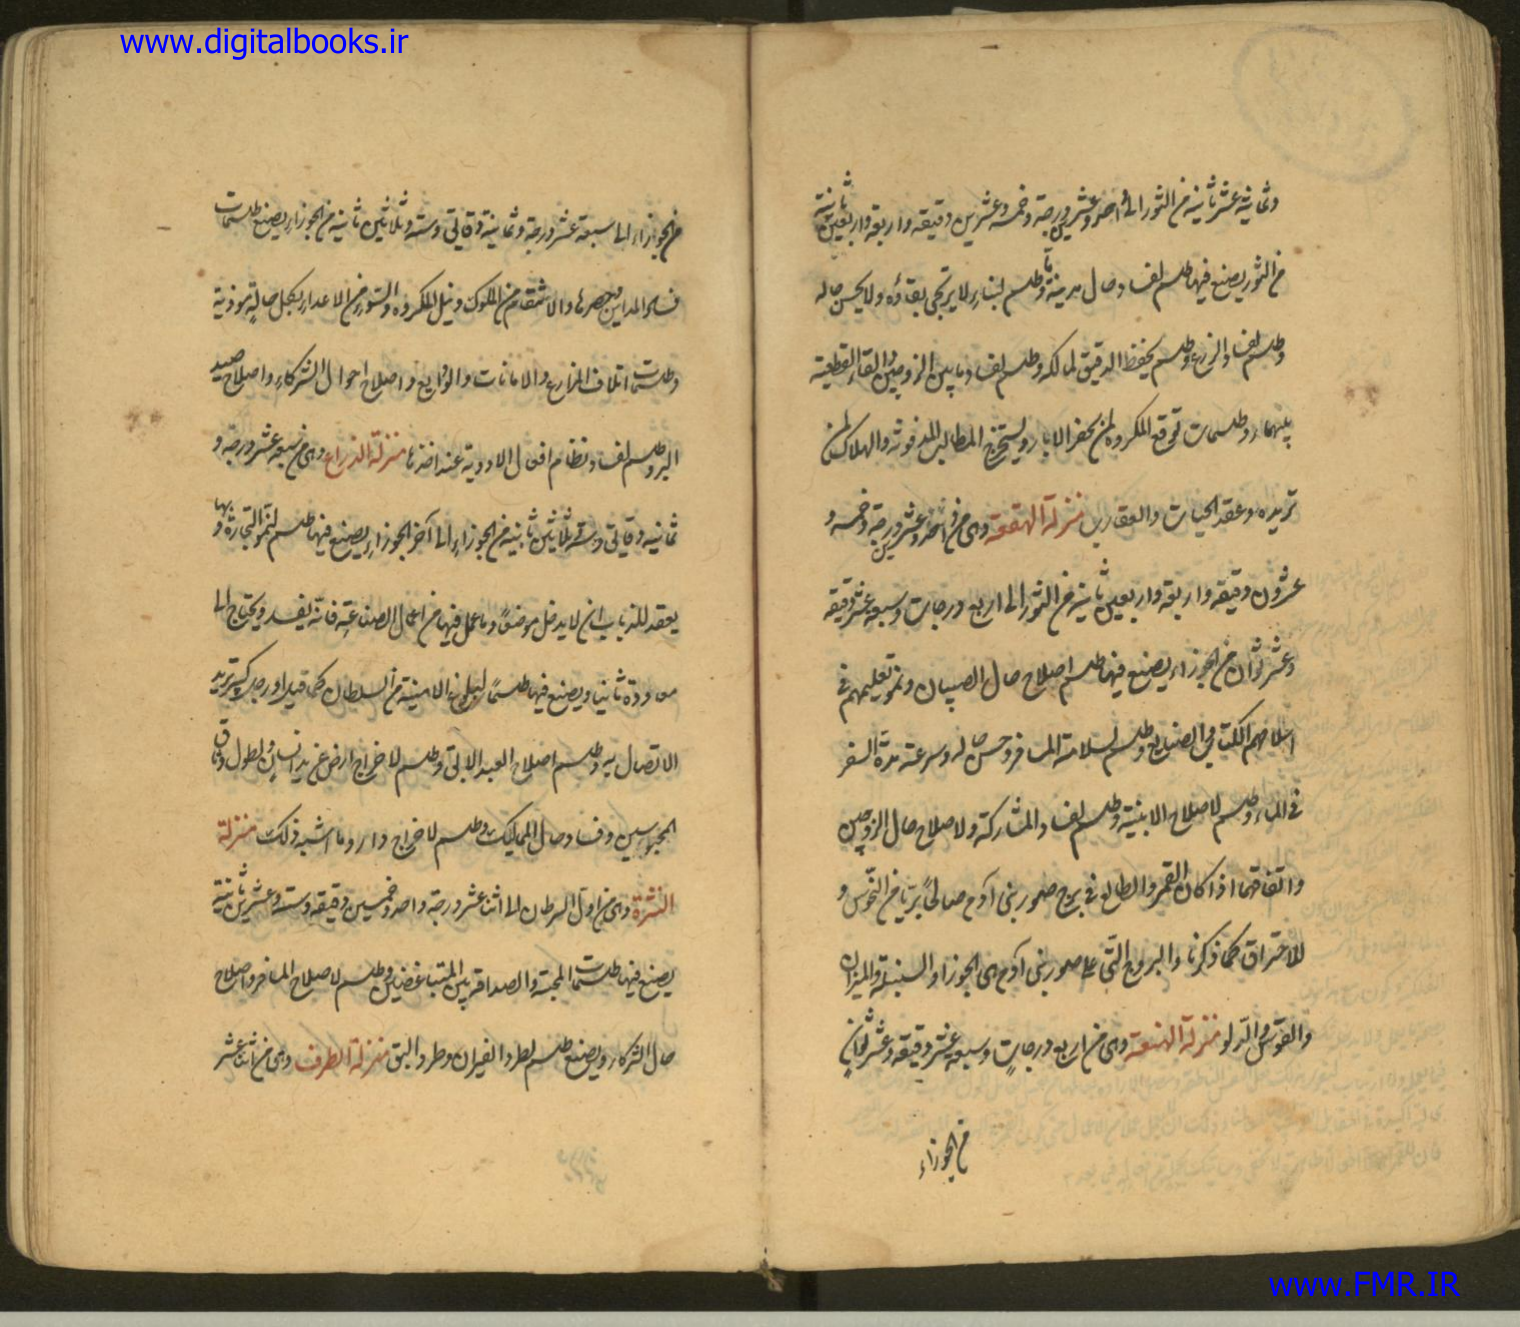 www.digitalbooks.ir
وثمانية عشر ثانية من الثور الى احد وعشرين درجة وخمسة وعشرين دقيقة واربعة واربعين ثانية
من الثور يصنع فيها طلسم لفساد حال مدينة ما وطلسم لبناء لا يرتجى بقاؤه ولا يحسن حاله
وطلسم لفساد الزرع وطلسم يحفظ الدقيق لمالكه وطلسم لفساد ما بين الزوجين والقاء القطيعة
بينهما وطلسمات توقع المكروه لمن يحفر الابار ويستخرج المطالب المدفونة والهلاك لمن
تريده وعقد الحيات والعقارب منزلة الهقعة وهى من احد وعشرين درجة وخمسة و
عشرون دقيقه واربعة واربعين ثانية من الثور الى اربع درجات وسبعه عشر دقيقه
وعشر ثوان من الجوزاء يصنع فيها طلسم اصلاح حال الصبيان ونمو تعليمهم فى
اسلامهم الكتابة فى الصنايع وطلسم لسلامة المسافر وحسن حاله وسرعته مدة السفر
فى الماء وطلسم لاصلاح الابنية وطلسم لفساد المشاركة ولاصلاح حال الزوجين
واتفاقهما اذا كان القمر والطالع فى برج صور بنى آدم صالحًا بريا من النحوس و
الاحتراق كما ذكرنا والبروج التى على صور بنى آدم هى الجوزا والسنبلة والميزان
والقوس والدلو منزلة الهنعة وهى من اربع درجات وسبعه عشر دقيقه وعشر ثوان
من الجوزاء
من الجوزاء الى سبعة عشر درجة وثمانية دقايق وستة وثلاثين ثانية من الجوزاء يصنع طلسمات
فساد المداين وحصرها والانتقام من الملوك ونيل المكروه والشرور من الاعداء بكل حالة موذية
وطلسمات اتلاف المزارع والامانات والودايع واصلاح احوال الشركاء واصلاح صيد
البر وطلسم لفساد نظام افعال الادوية عند اخذها منزلة الذراع وهى من سبعه عشر درجة و
ثمانيه دقايق وستة ثلاثين ثانية من الجوزاء الى آخر الجوزاء يصنع فيها طلسم لنمو التجارة وبها
يعقد للذباب ان لا يدخل موضعًا وما عمل فيها من اعمال الصناعة فانه يفسد ويحتاج الى
معاودة ثانيا ويصنع فيها طلسمًا لبلوغ الامنية من السلطان كما قيل او رجل كبير تريد
الاتصال به وطلسم اصلاح العبد الابق وطلسم لاخراج ارض عن يد انسان ولطول وثاق
المحبوسين وفساد حال المماليك وطلسم لاخراج دار وما اشبه ذلك منزلة
النثرة وهى من اول السرطان الى اثنا عشر درجة واحد وخمسين دقيقه وستة وعشرين ثانية
يصنع فيها طلسمات المحبة والصداقة بين المتباغضين وطلسم لاصلاح المسافر واصلاح
حال الشركاء ويصنع طلسم لطرد الفيران وطرد البق منزلة الطرف وهى من اثنا عشر
www.FMR.IR